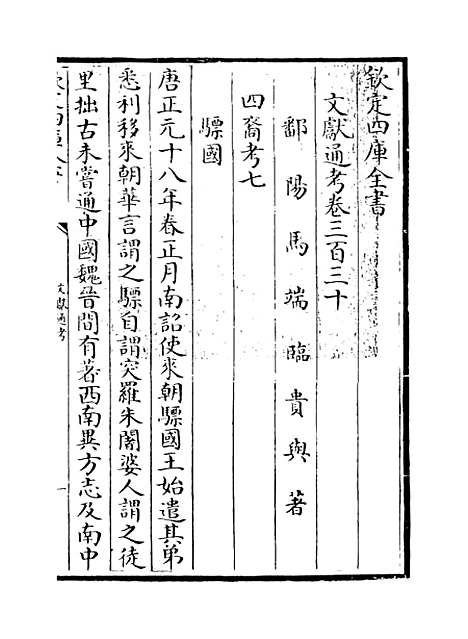 欽定四庫全書
文獻通考卷三百三十
鄱陽馬端臨貴與著
四裔考七
驃國
唐正元十八年春正月南詔使來朝驃國王始遣其弟
悉利移來朝華言謂之驃自謂突羅朱闍婆人謂之徒
里拙古未嘗通中國魏晉間有著西南異方志及南中
文獻通考
一